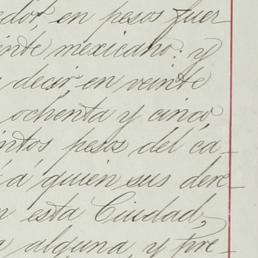 edor, en pesos fuer
einte mexicano: y
decir, en veinte
ochenta y cinco,
intos pesos del ca-
a quien sus dere-
n esta Ciudad,
alguna, y pre-